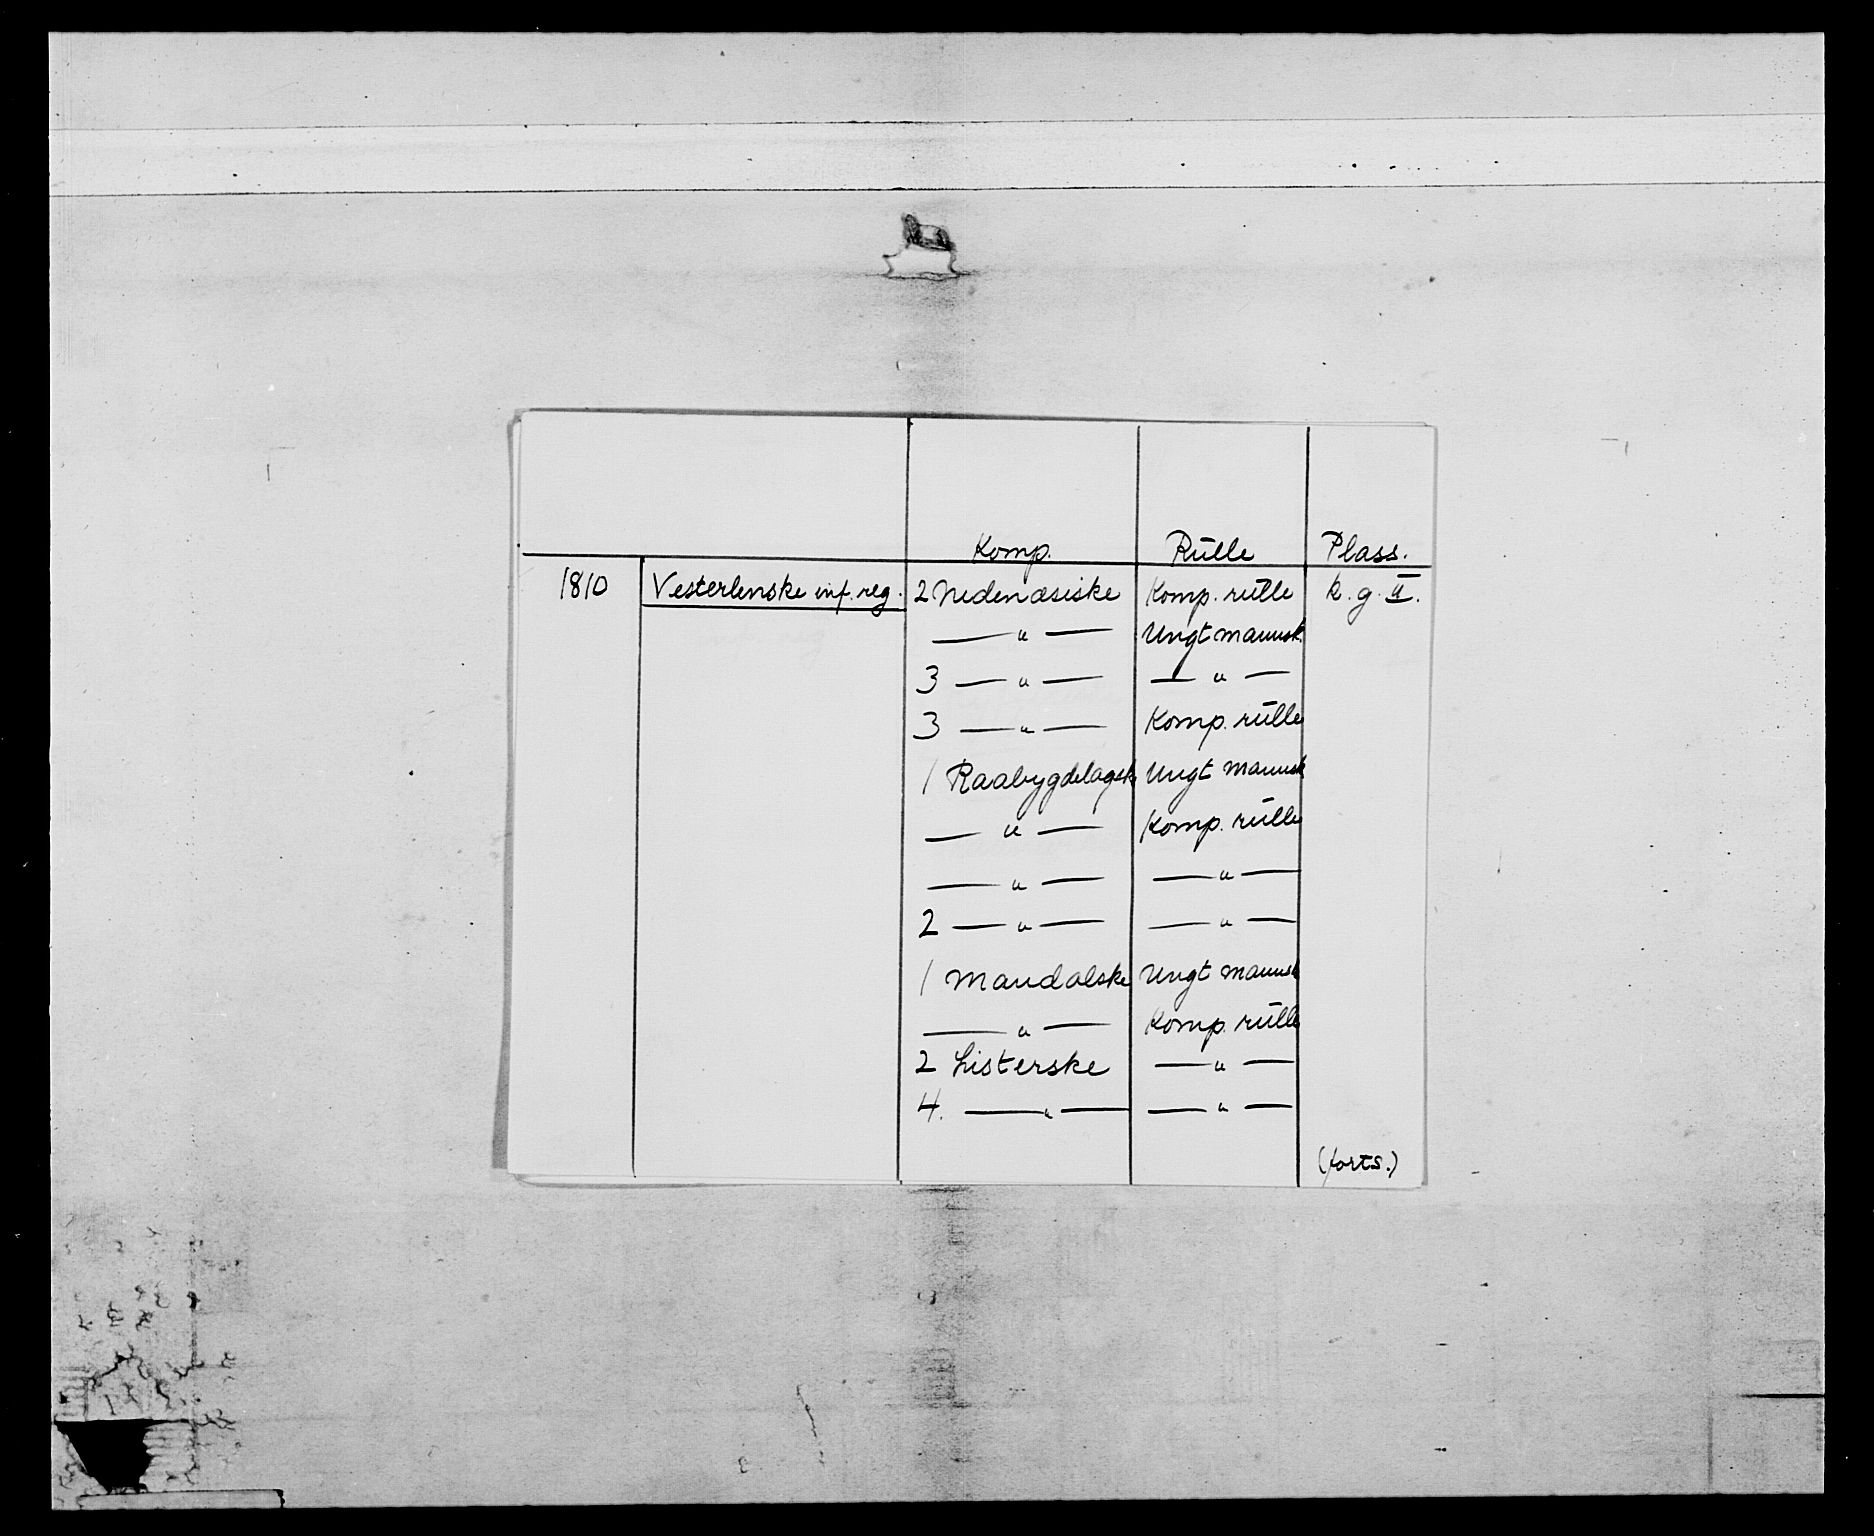 Komp. Rulle Plass.
1810 Vesterlenske inf. reg. 2 Nedenæsiske Komp. rulle k. g. II.
— " — Ungt mannsk.
3 — " — — " —
3 — " — Komp. rulle
1 Raabygdelagsk Ungt mannsk
— " — Komp. rulle
— " — — " —
2 — " — — " —
1 Mandalske Ungt mannsk
— " — Komp. rulle
2 Listerske — " —
4. — " — — " —
(forts.)